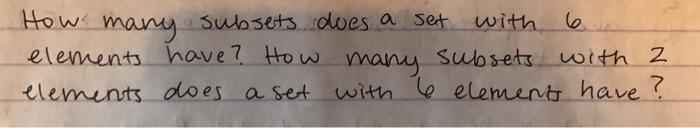 How many subsets does a set with 6
elements have? How many subsets with 2
elements does a set with 6 elements have?